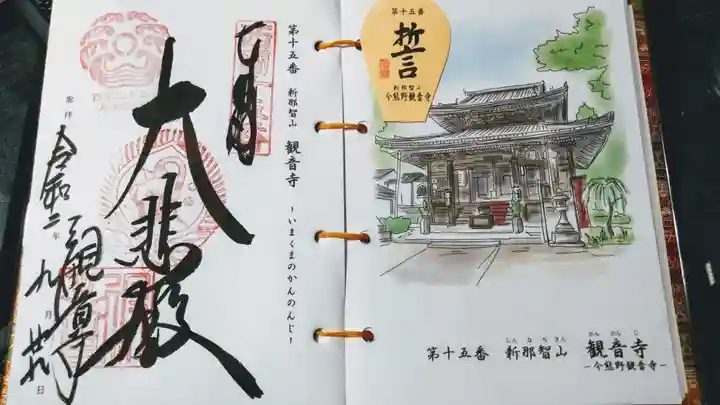 奉拝
令和二年九月廿九日
大悲殿
観音寺
第十五番 新那智山 観音寺 ーいまくまのかんのんじー
第十五番
誓
新那智山
今熊野観音寺
しんなちさん かんのんじ
第十五番 新那智山 観音寺
ー今熊野観音寺ー